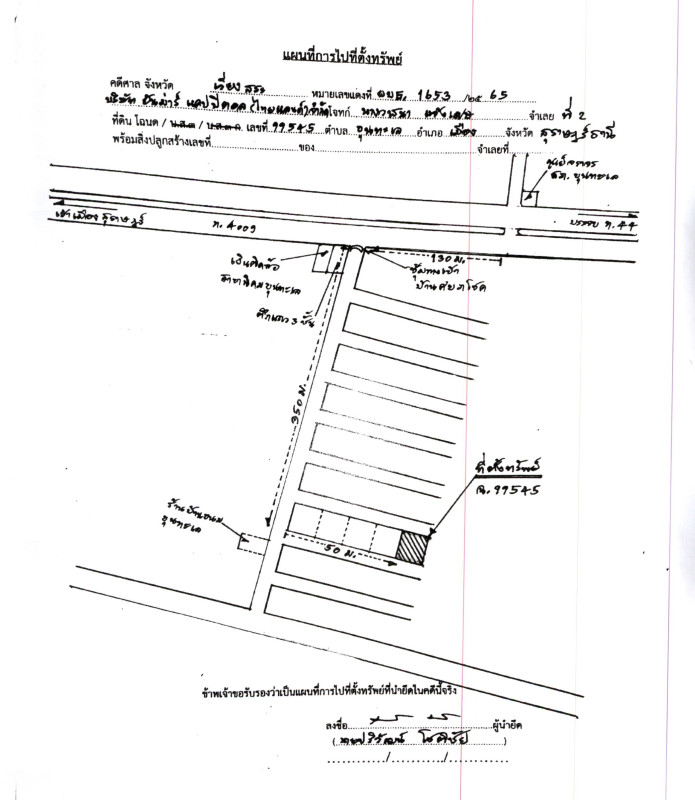 แผนที่การไปที่ตั้งทรัพย์
คดีศาล จังหวัด เวียงสระ หมายเลขแดงที่ ผบE. 1653 /๒๕ 65
บริษัท ยันม่าร์ แคปปิตอล (ไทยแลนด์) จำกัด โจทก์ จำเลย ที่ 2
ที่ดิน โฉนด / น.ส.๓ / น.ส.๓ ก. เลขที่ 99545 ตำบล ขุนทะเล อำเภอ เมือง จังหวัด สุราษฎร์ธานี
พร้อมสิ่งปลูกสร้างเลขที่ ของ จำเลยที่
ศูนย์ราชการ
สภ. ขุนทะเล
เข้าเมืองสุราษฎร์
ถ. 4009
บรรจบ ถ.44
130 ม.
เงินติดล้อ
สาขานิคมขุนทะเล
ซุ้มทางเข้า
บ้านโชค
ตึกแถว 3 ชั้น
350 ม.
ที่ตั้งทรัพย์
ฉ. 99545
ร้าน
ขุนทะเล
50 ม.
ข้าพเจ้าขอรับรองว่าเป็นแผนที่การไปที่ตั้งทรัพย์ที่นำยึดในคดีนี้จริง
ลงชื่อ ผู้นำยึด
( นายปริวัฒน์ โชติชัย )
/ /